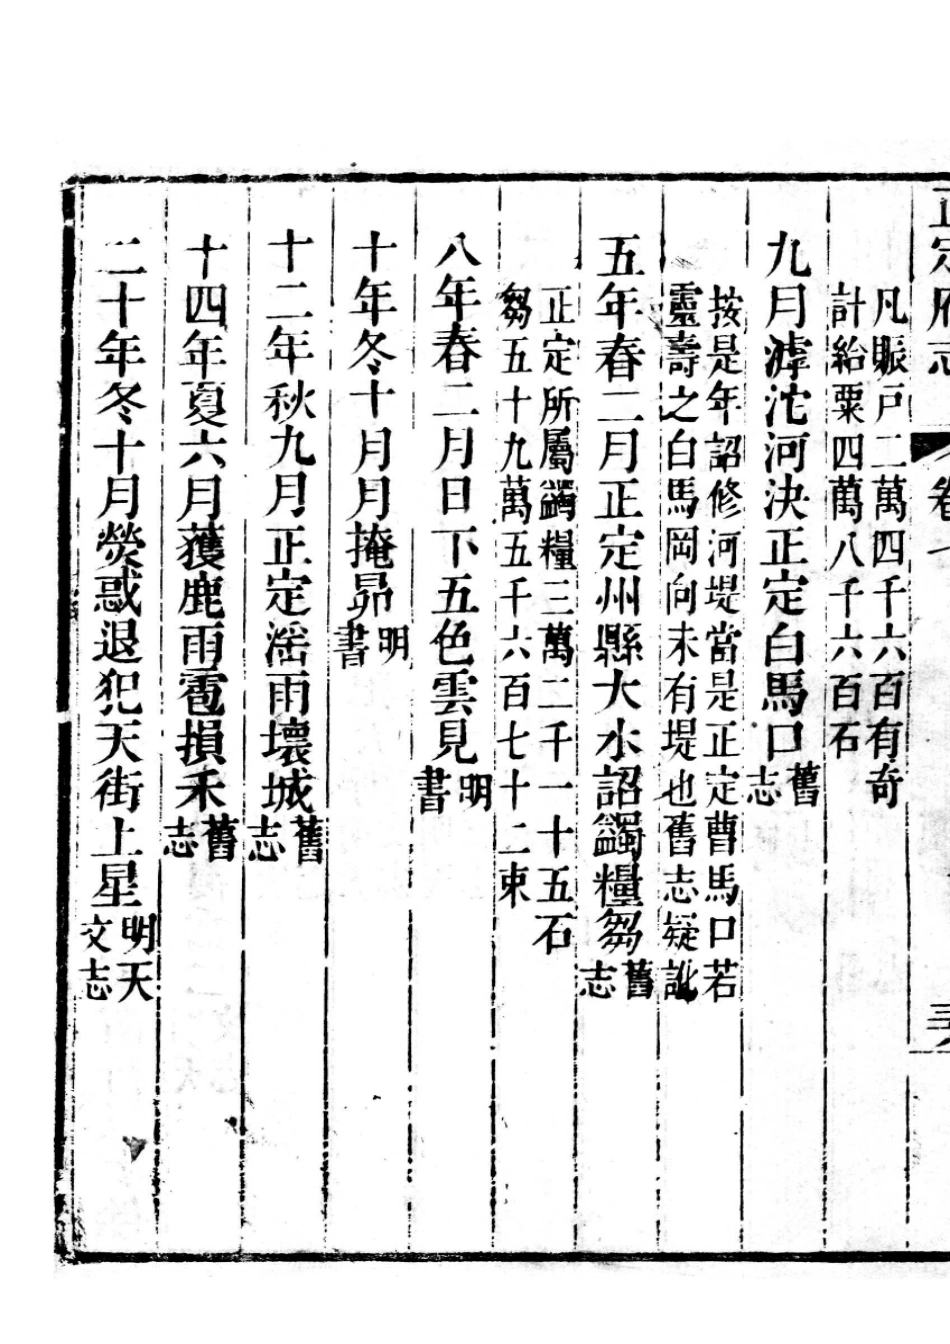 正定府志 卷七
凡賑戸二萬四千六百有奇
計給粟四萬八千六百石
九月滹沱河決正定白馬口舊志
按是年詔修河堤當是正定曹馬口若
靈壽之白馬岡向未有堤也舊志疑訛
五年春二月正定州縣大水詔蠲糧芻舊志
正定所屬蠲糧三萬二千一十五石
芻五十九萬五千六百七十二束
八年春二月日下五色雲見明書
十年冬十月月掩昴明書
十二年秋九月正定滛雨壞城舊志
十四年夏六月獲鹿雨雹損禾舊志
二十年冬十月熒惑退犯天街上星明天文志